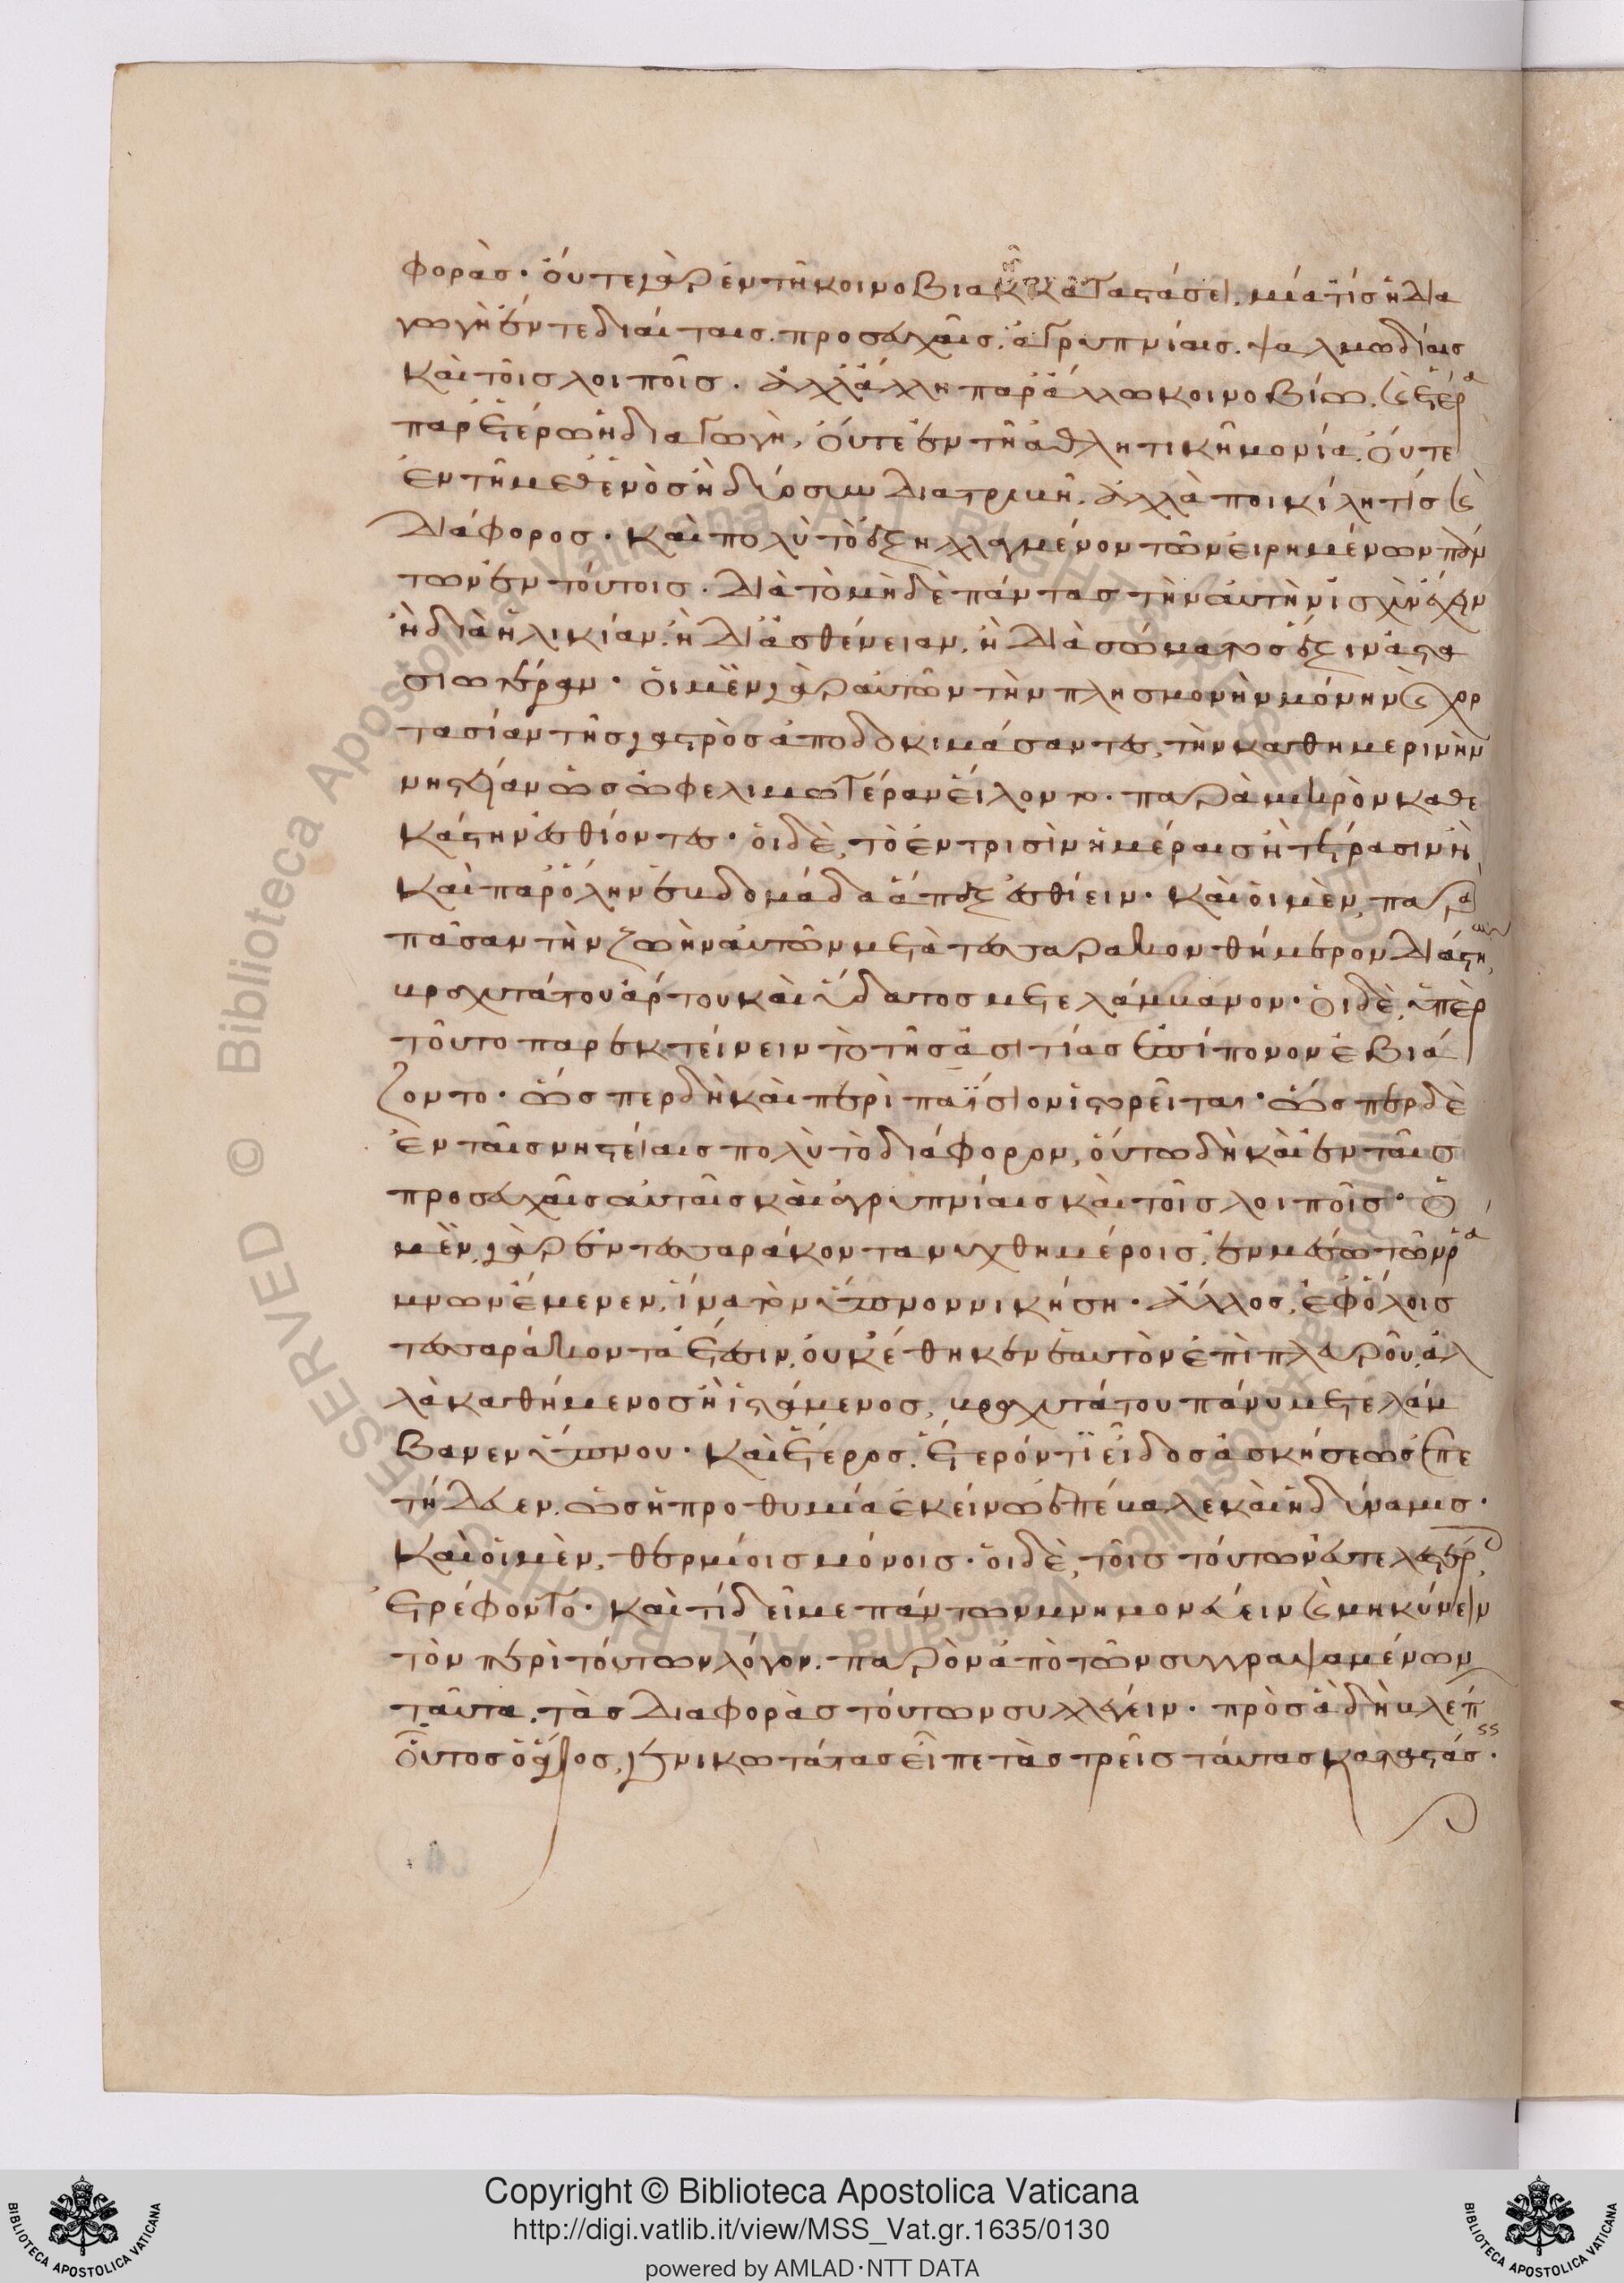 φορὰς· οὔτε γὰρ ἐν τῆ κοινοβιακῆ καταστάσει, μία τίς ἡ δια
γωγὴ ἔν τε διαίταις. προσευχαῖς. ἀγρυπνίαις. ψαλμωδίαις
καὶ τοῖς λοιποῖς. ἀλλ' ἄλλη παρ' ἄλλω κοινοβίω, καὶ ἑτέρα
παρ' ἑτέρω ἡ διαγωγὴ, οὔτε ἐν τῆ ἀθλητικῆ μονία. οὔτε
ἐν τῆ μεθ' ἑνὸς ἢ δύο συνδιατριβῆ. ἀλλὰ ποικίλη τίς καὶ
διάφορος. καὶ πολὺ τὸ ἐξηλλαγμένον τῶν εἰρημένων πάν
των ἐν τούτοις. διὰ τὸ μὴ δὲ πάντας τὴν αὐτὴν ἰσχὺν ἔχειν
ἢ διὰ ἡλικίαν. ἢ δι' ἀσθένειαν. ἢ διὰ σώματος ἕξιν ἀστα
σιωτέραν. οἱ μὲν γὰρ αὐτῶν τὴν πλησμονὴν μόνην καὶ χορ
τασίαν τῆς γαστρὸς ἀποδοκιμάσαντες, τὴν καθημερινὴν
νηστείαν ὡς ὠφελιμωτέραν εἵλοντο. παρὰ μικρὸν καθ' ἑ
κάστην ἐσθίοντες. οἱ δὲ, τὸ ἐν τρισὶν ἡμέραις ἢ τέτρασιν ἢ
καὶ παρ' ὅλην ἑβδομάδα ἅπαξ ἐσθίειν. καὶ οἱ μὲν, παρὰ
πᾶσαν τὴν ζωὴν αὐτῶν μετὰ τεσσαρακονθήμερον διάστημα,
βραχυτάτου ἄρτου καὶ ὕδατος μετελάμβανον. οἱ δὲ, ὑπὲρ
τοῦτο παρεκτείνειν τὸ τῆς ἀσιτίας ἐπίπονον ἐβιά
ζοντο. ὥσπερ δὴ καὶ περὶ παϊσίον ἱστορεῖται. ὥσπερ δὲ
ἐν ταῖς νηστείαις πολὺ τὸ διάφορον, οὕτω δὴ καὶ ἐν ταῖς
προσευχαῖς αὐταῖς καὶ ἀγρυπνίαις καὶ τοῖς λοιποῖς. ὁ
μὲν, γὰρ ἐν τεσσαράκοντα νυχθημέροις, ἐν μέσω τῶν ῥά
μνων ἔμενεν, ἵνα τὸν ὕπνον νικήση. ἄλλος, ἐφ' ὅλοις
τεσσαράκοντα ἔτεσιν, οὐκ ἔθηκεν ἑαυτὸν ἐπὶ πλευροῦ, ἀλ
λὰ καθήμενος ἢ ἱστάμενος, βραχυτάτου πάνυ μετελάμ
βανεν ὕπνου. καὶ ἕτερος, ἕτερόν τι εἶδος ἀσκήσεως ἐπε
τήδευεν. ὡς ἡ προθυμία ἐκείνω ὑπέβαλε καὶ ἡ δύναμις.
καὶ οἱ μὲν, θερμίοις μόνοις. οἱ δὲ, τοῖς τούτων εὐτελεστέροις,
ἐτρέφοντο. καὶ τί δεῖ με πάντων μνημονεύειν καὶ μηκύνειν
τὸν περὶ τούτων λόγον. παρὸν ἀπὸ τῶν συγγραψαμένων
ταῦτα, τὰς διαφορὰς τούτων συλλέγειν. πρὸς ἃ δὴ βλέπων
οὗτος ὁ ἅγιος, γενικωτάτας εἶπε τὰς τρεῖς ταύτας καταστάσεις.
Copyright © Biblioteca Apostolica Vaticana
http://digi.vatlib.it/view/MSS_Vat.gr.1635/0130
powered by AMLAD·NTT DATA